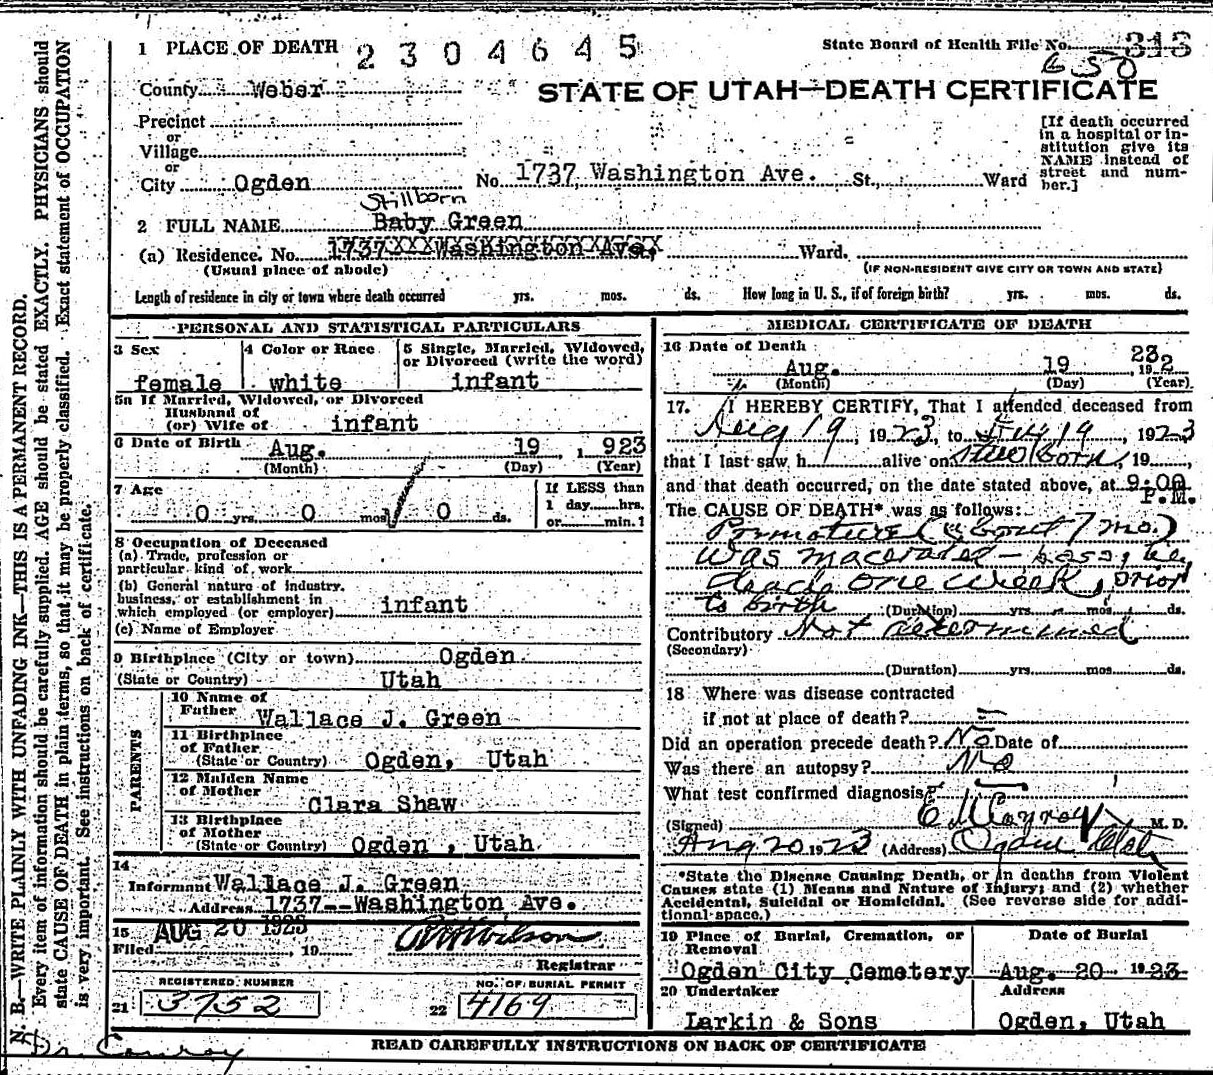 1 PLACE OF DEATH 2304645
State Board of Health File No. 313
650
County Weber
STATE OF UTAH—DEATH CERTIFICATE
Precinct
or
Village
or
City Ogden No. 1737 Washington Ave. St., Ward
[If death occurred
in a hospital or in-
stitution give its
NAME instead of
street and num-
ber.]
Stillborn
2 FULL NAME Baby Green
(a) Residence. No. 1737 XXX Washington Ave. Ward.
(Usual place of abode)
(IF NON-RESIDENT GIVE CITY OR TOWN AND STATE)
Length of residence in city or town where death occurred yrs. mos. ds. How long in U. S., if of foreign birth? yrs. mos. ds.
PERSONAL AND STATISTICAL PARTICULARS
3 Sex
female
4 Color or Race
white
5 Single, Married, Widowed,
or Divorced (write the word)
infant
5a If Married, Widowed, or Divorced
Husband of
(or) Wife of infant
6 Date of Birth Aug. 19, 1923
(Month) (Day) (Year)
7 Age
0 yrs. 0 mos. 0 ds.
If LESS than
1 day......hrs.
or......min.?
8 Occupation of Deceased
(a) Trade, profession or
particular kind of work
(b) General nature of industry.
business, or establishment in
which employed (or employer) infant
(c) Name of Employer
9 Birthplace (City or town) Ogden
(State or Country) Utah
PARENTS
10 Name of
Father Wallace J. Green
11 Birthplace
of Father
(State or Country) Ogden, Utah
12 Maiden Name
of Mother
Clara Shaw
13 Birthplace
of Mother
(State or Country) Ogden, Utah
14
Informant Wallace J. Green
Address 1737--Washington Ave.
15 AUG 20 1923
Filed , 19 Wilson
Registrar
REGISTERED NUMBER
21 3752
NO. OF BURIAL PERMIT
22 4169
MEDICAL CERTIFICATE OF DEATH
16 Date of Death
Aug. 19 23
(Month) (Day) (Year)
17. I HEREBY CERTIFY, That I attended deceased from
Aug 19, 1923, to 19, 1923
that I last saw h alive on still born, 19
and that death occurred, on the date stated above, at 9:00
P.M.
The CAUSE OF DEATH* was as follows:
Premature (about 7 mo.)
was macerated — been
dead one week prior
to birth (Duration) yrs. mos. ds.
Contributory Not determined
(Secondary)
(Duration) yrs. mos. ds.
18 Where was disease contracted
if not at place of death?
Did an operation precede death? No Date of
Was there an autopsy? No
What test confirmed diagnosis?
(Signed) E M Conroy M. D.
Aug 20 1923 (Address) Ogden Utah
*State the Disease Causing Death, or in deaths from Violent
Causes state (1) Means and Nature of Injury; and (2) whether
Accidental, Suicidal or Homicidal. (See reverse side for addi-
tional space.)
19 Place of Burial, Cremation, or
Removal
Ogden City Cemetery
Date of Burial
Aug. 20 1923
20 Undertaker
Larkin & Sons
Address
Ogden, Utah
READ CAREFULLY INSTRUCTIONS ON BACK OF CERTIFICATE
Dr. Conroy
N. B.—WRITE PLAINLY WITH UNFADING INK—THIS IS A PERMANENT RECORD.
Every item of information should be carefully supplied. AGE should be stated EXACTLY. PHYSICIANS should
state CAUSE OF DEATH in plain terms, so that it may be properly classified. Exact statement of OCCUPATION
is very important. See instructions on back of certificate.